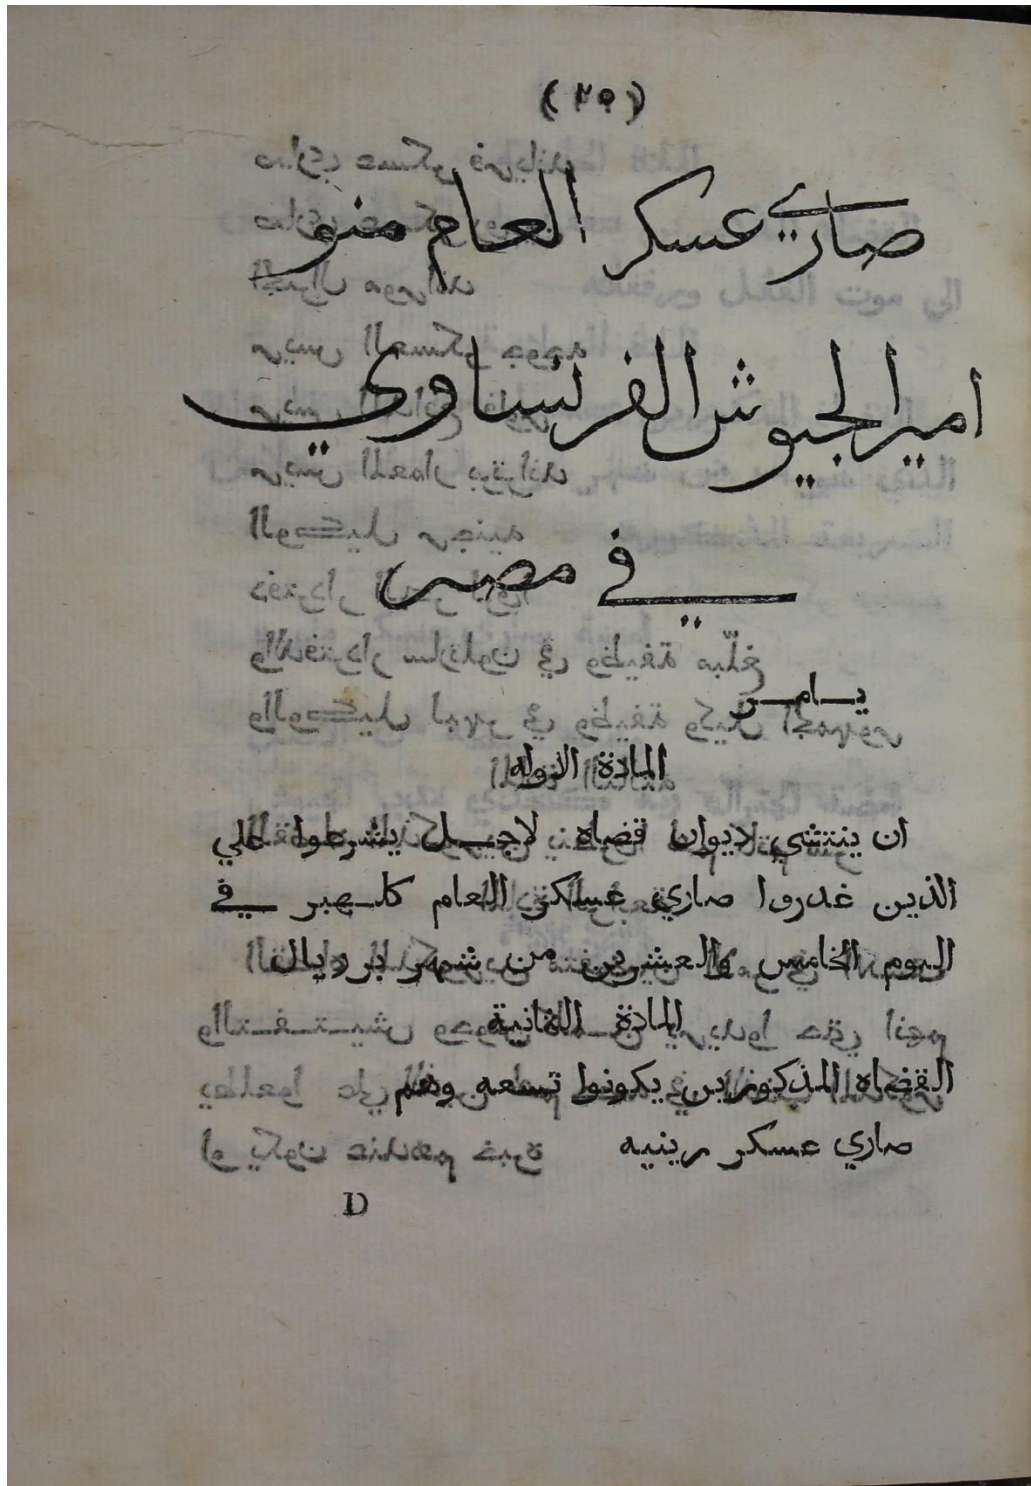 (٢٥)
صاري عسكر العام منو
امير الجيوش الفرنساوي
في مصر
يامن
المادة الاوله
ان ينتشي ديوان قضاه لاجل يشرطوا علي
الذين غدروا صاري عسكر العام كلهبر في
اليوم الخامس والعشرين من شهر بررديال
المادة الثانية
القضاه المذكورين يكونوا تسعه وهم
صاري عسكر رينيه
D